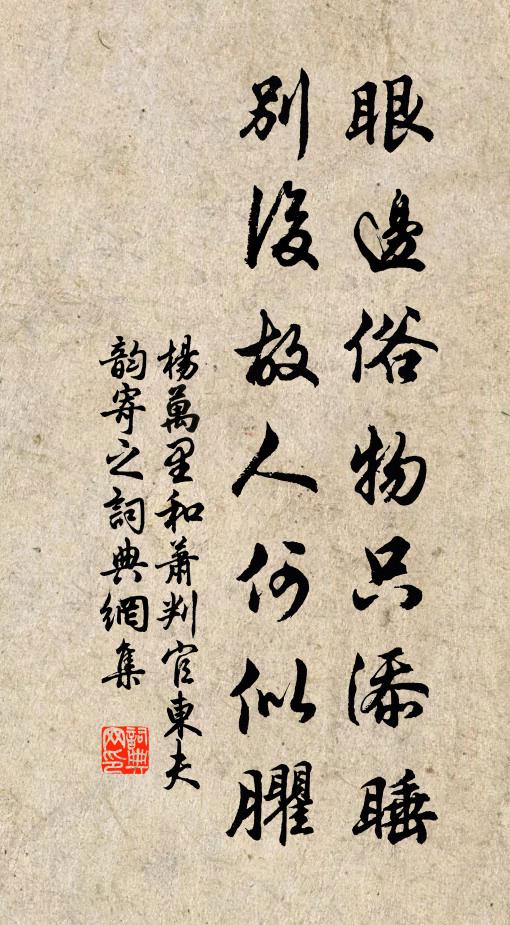 眼邊俗物只添睡
別後故人何似臞
楊萬里和蕭判官東夫
韵寄之詞典網集
詞典网印